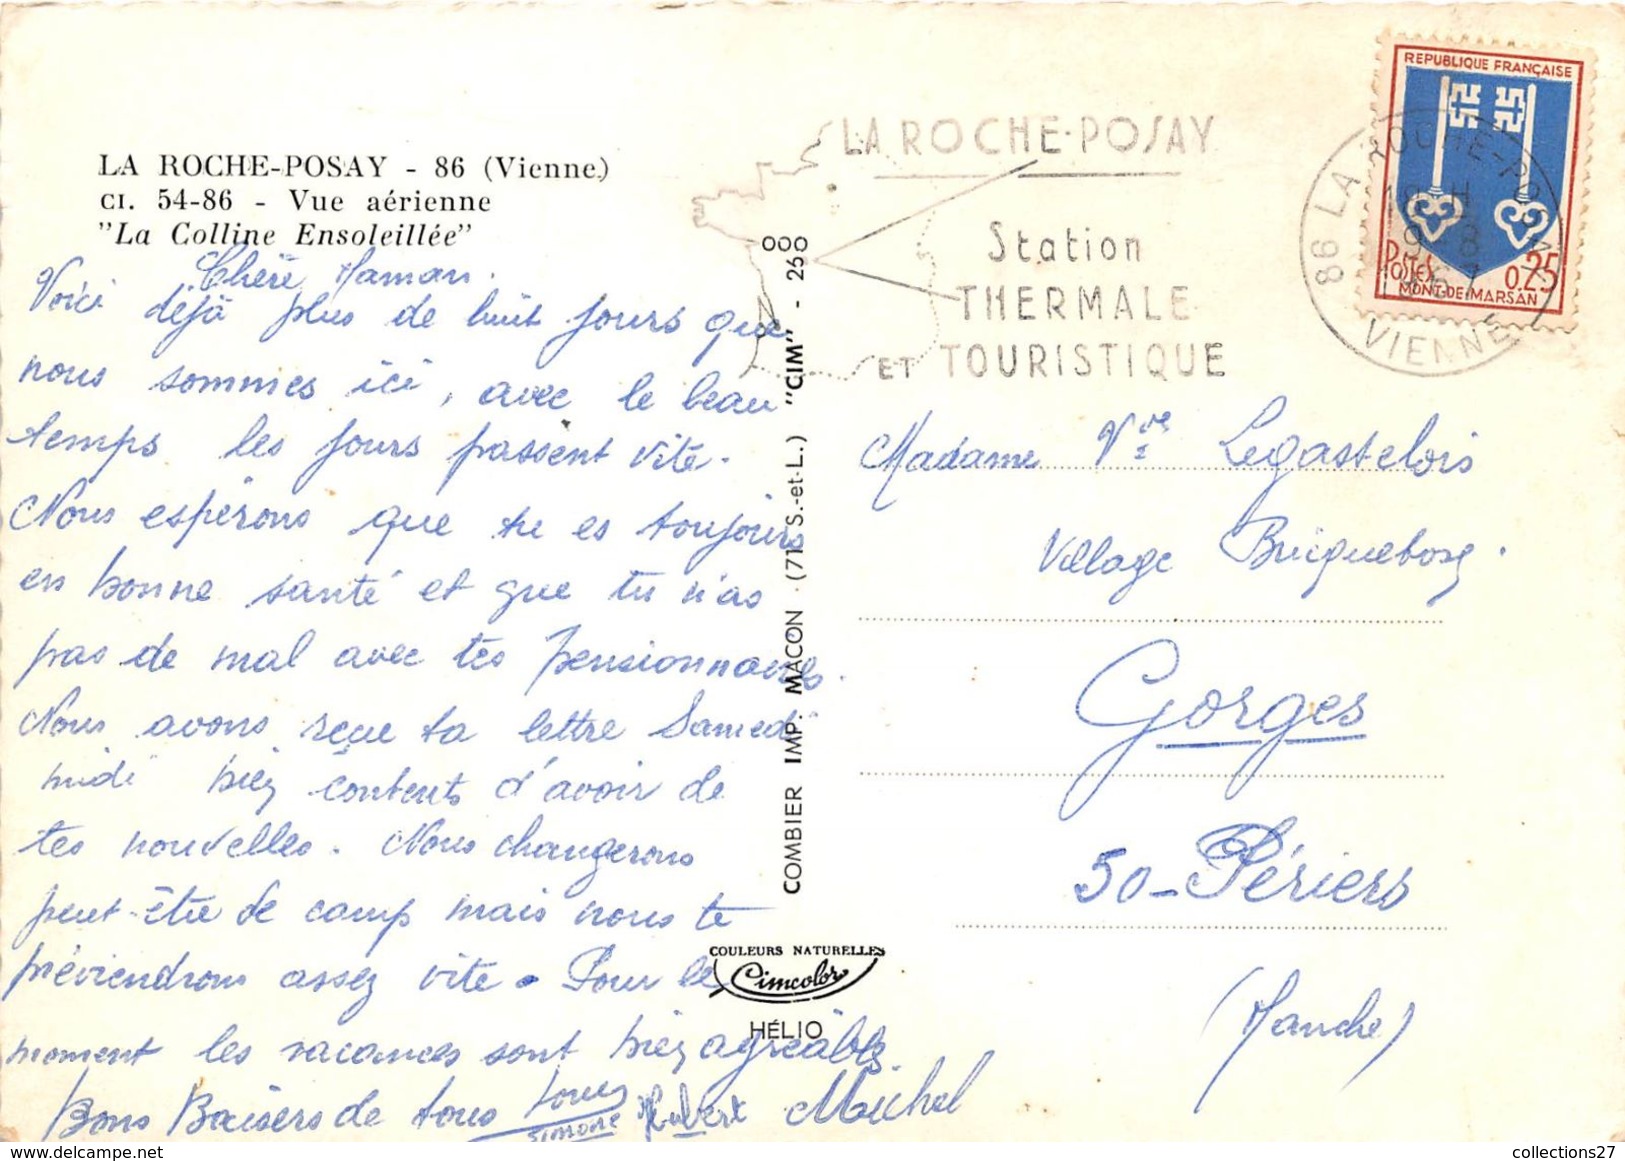 LA ROCHE-POSAY - 86 (Vienne)
CI. 54-86 - Vue aérienne
"La Colline Ensoleillée"
Chère Maman.
Voici déjà plus de huit jours que
nous sommes ici, avec le beau
temps les jours passent vite.
Nous espérons que tu es toujours
en bonne santé et que tu n'as
pas de mal avec tes pensionnaires.
Nous avons reçue ta lettre Samedi
midi bien contents d'avoir de
tes nouvelles. Nous changerons
peut-être de camp mais nous te
préviendrons assez vite. Pour le
moment les vacances sont bien agréables
Bons Baisers de tous
Simone Hubert Michel
COMBIER IMP. MACON (71 S.-et-L.) "CIM" - 250 000
COULEURS NATURELLES
Cimcolor
HÉLIO
LA ROCHE-POSAY
Station
THERMALE
ET TOURISTIQUE
86 LA ROCHE-POSAY
18 H
9-8
1967
VIENNE
REPUBLIQUE FRANÇAISE
POSTES 0,25
MONT-DE-MARSAN
Madame Vve Legastelois
Village Bricquebosq.
Gorges
50-Périers
(Manche)
collections27